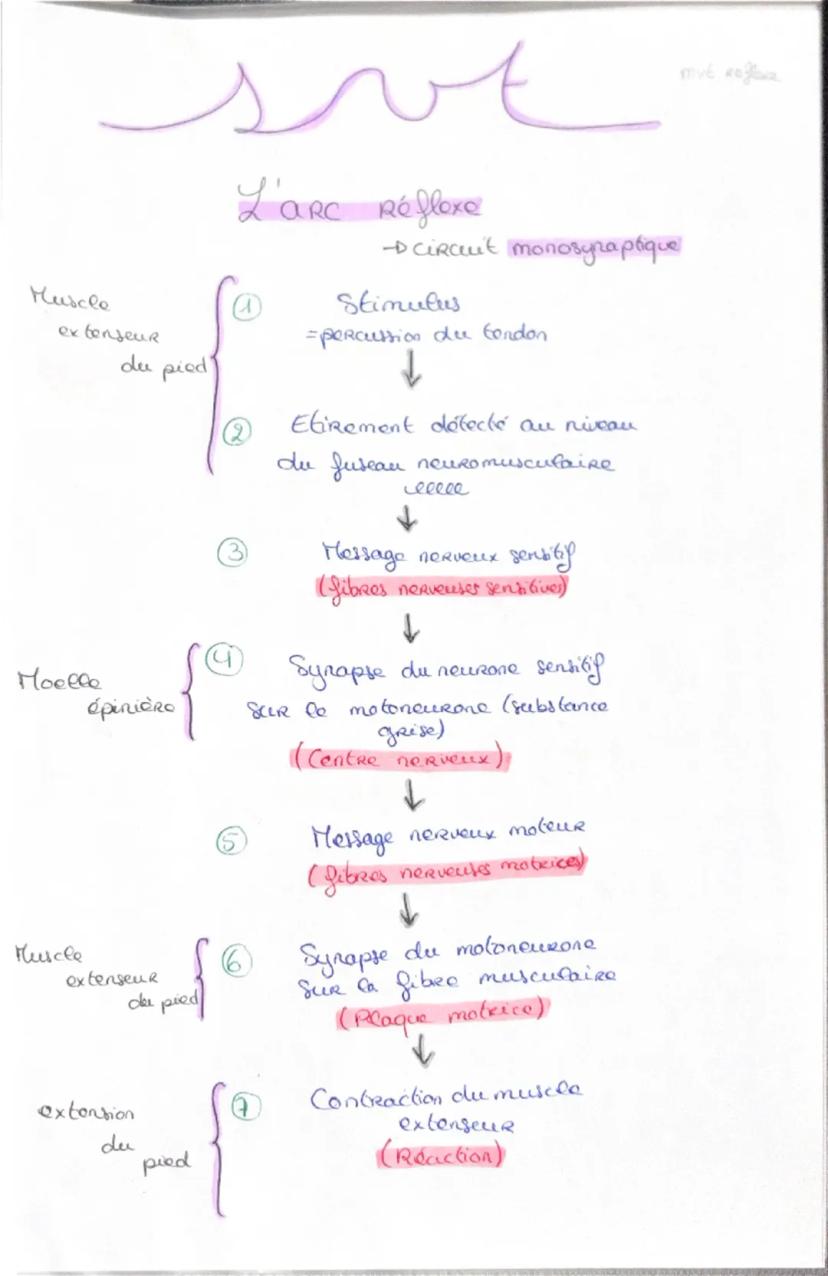 mvt reflexe
svt
L'arc réflexe
→ circuit monosynaptique
Muscle
extenseur
du pied
① Stimulus
= percussion du tendon
↓
② Etirement détecté au niveau
du fuseau neuromusculaire
↓
③ Message nerveux sensitif
(fibres nerveuses sensitives)
↓
Moelle
épinière
④ Synapse du neurone sensitif
sur le motoneurone (substance
grise)
(Centre nerveux)
↓
⑤ Message nerveux moteur
(fibres nerveuses motrices)
↓
Muscle
extenseur
du pied
⑥ Synapse du motoneurone
sur la fibre musculaire
(Plaque motrice)
↓
extension
du
pied
⑦ Contraction du muscle
extenseur
(Réaction)